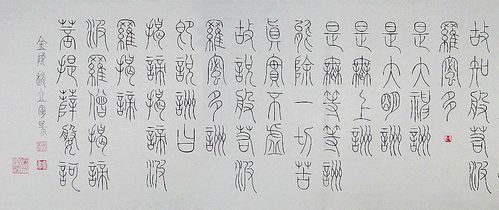 故知般若波
羅蜜多
是大神詶
是大明詶
是無上詶
是無等等詶
能除一切苦
真實不虛
故說般若波
羅蜜多詶
即說詶曰
揭諦揭諦波
羅揭諦
波羅僧揭諦
菩提薩婆訶
金陵